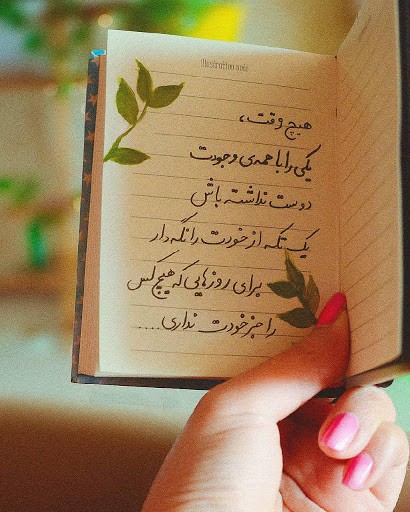 Illustration note
هیچ وقت،
یکی را با همه‌ی وجودت
دوست نداشته باش
یک تکه از خودت را نگه دار
برای روزهایی که هیچ کس
را جز خودت نداری....